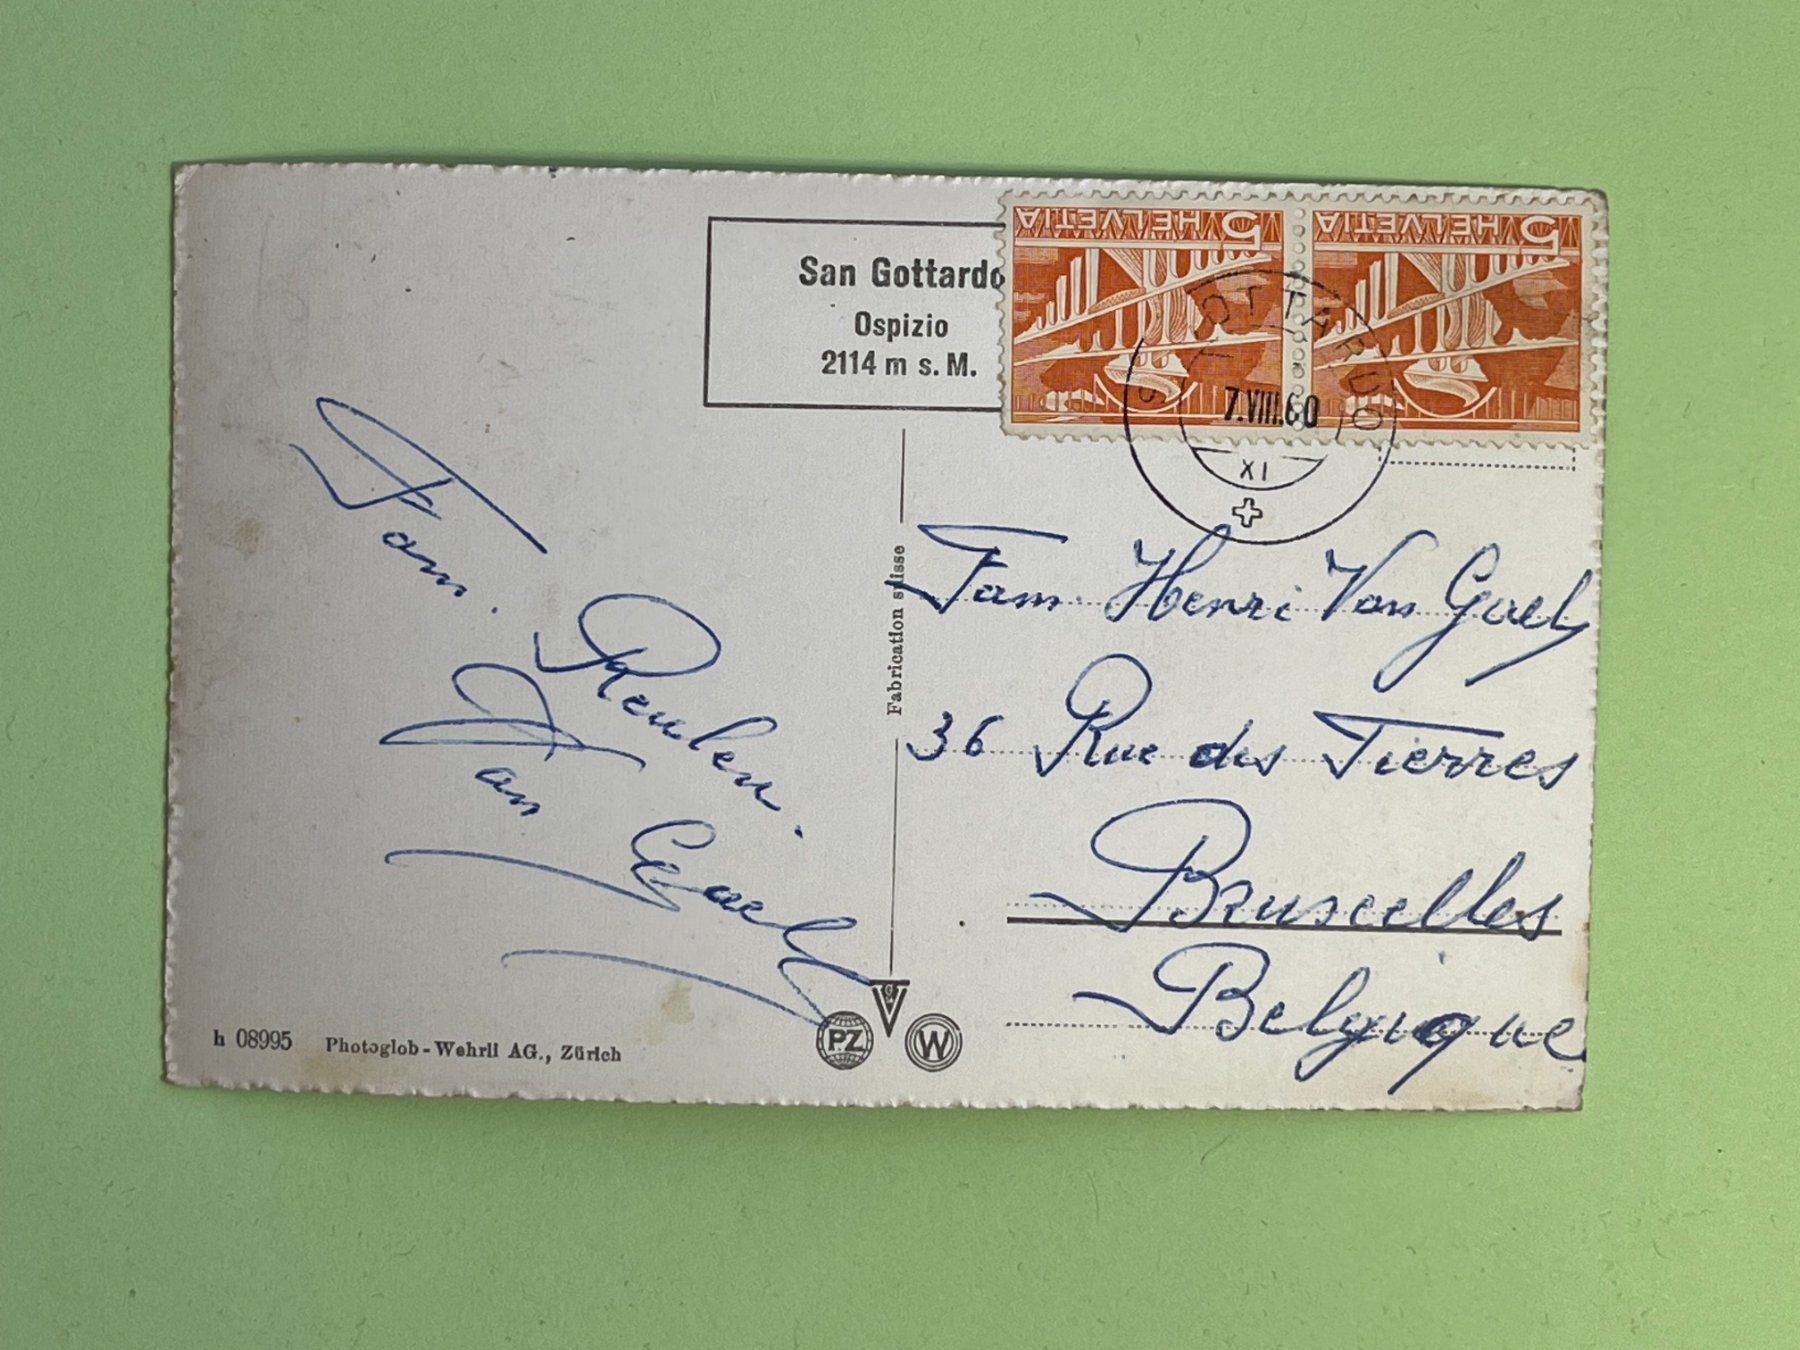 San Gottardo
Ospizio
2114 m s. M.
5 HELVETIA
5 HELVETIA
OTTARDO
7.VIII.60
XI
Fam. Reulen.
Van Gael
Fabrication suisse
Fam. Henri Van Gael
36 Rue des Tierres
Bruxelles
Belgique
h 08995 Photoglob-Wehrli AG., Zürich
PZ
W